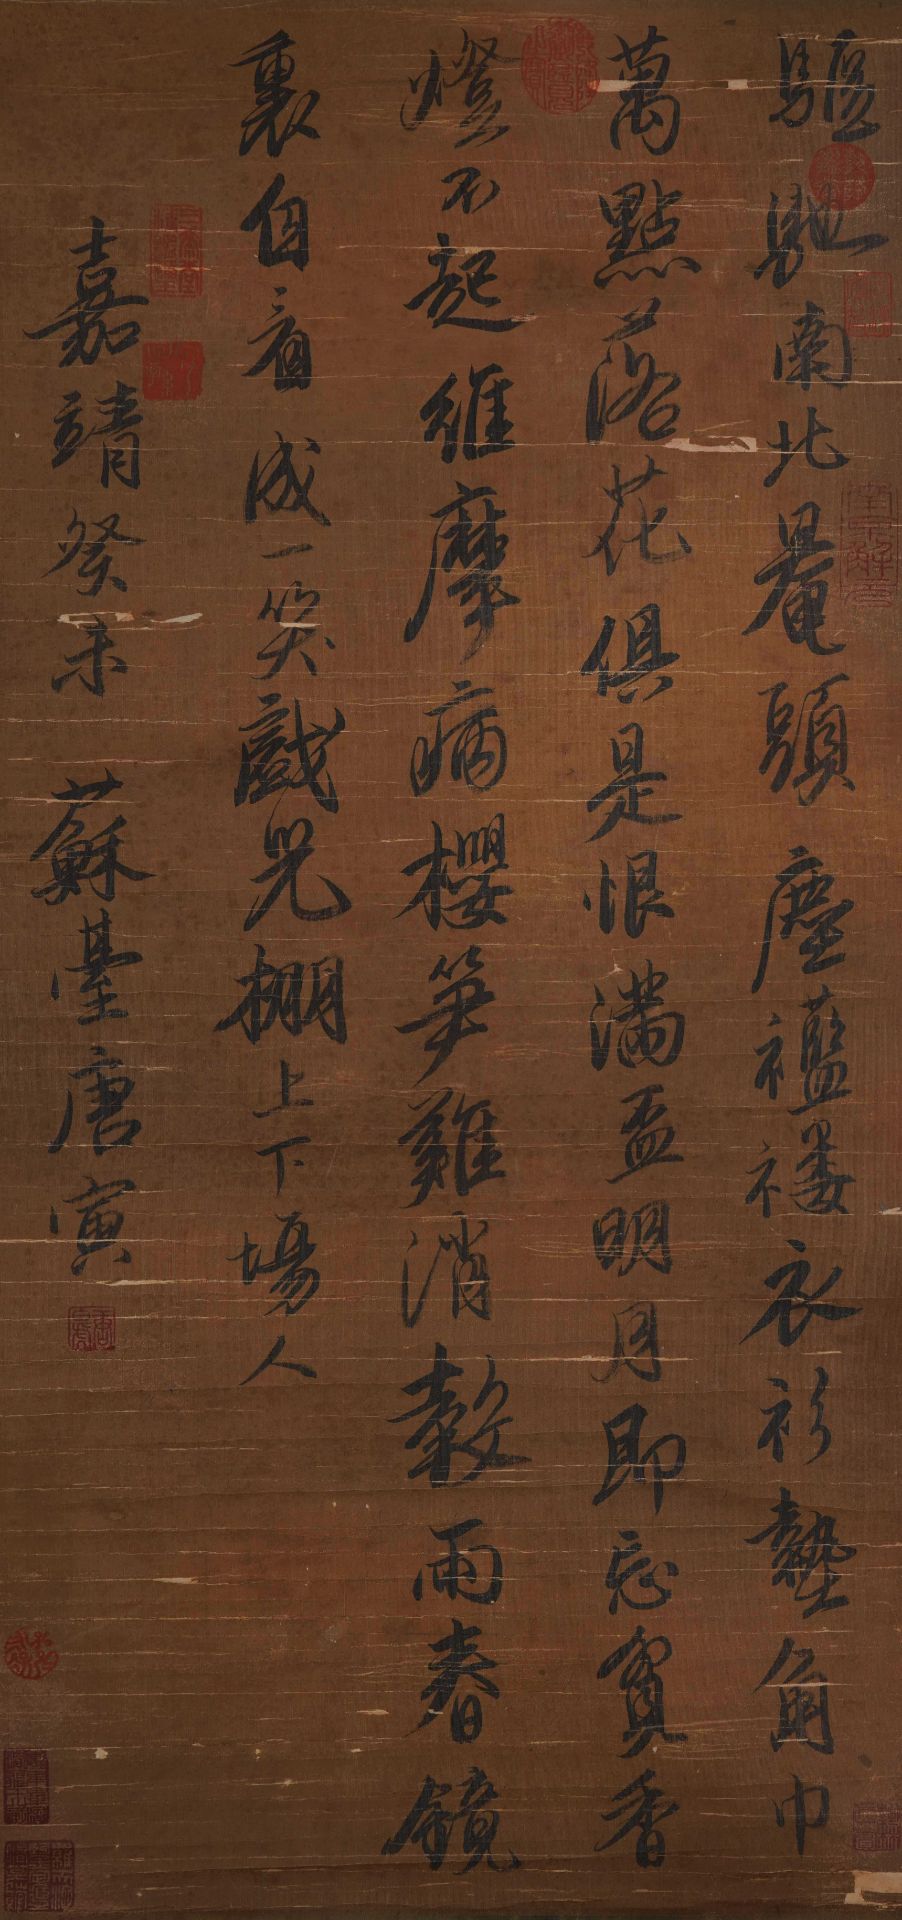 驅馳南北菴頭塵襤褸衣衫墊角巾
萬點落花俱是恨滿盃明月即忘貧香
燈不起維摩病櫻笋難消穀雨春鏡
裏自看成一笑戲兒棚上下場人
嘉靖癸未 蘇臺唐寅
南京解元